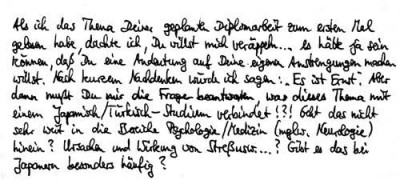 Als ich das Thema Deiner geplanten Diplomarbeit zum ersten Mal
gelesen habe, dachte ich, Du willst mich veräppeln... es hätte ja sein
können, daß Du eine Andeutung auf Deine eigenen Anstrengungen machen
willst. Nach kurzem Nachdenken würde ich sagen: „Es ist Ernst". Aber
dann mußt Du mir die Frage beantworten, was dieses Thema mit
einem Japanisch/Türkisch-Studium verbindet !?! Geht das nicht
sehr weit in die Bereiche Psychologie/Medizin (mglw. Neurologie)
hinein? Ursachen und Wirkung von Streß usw...? Gibt es das bei
Japanern besonders häufig?